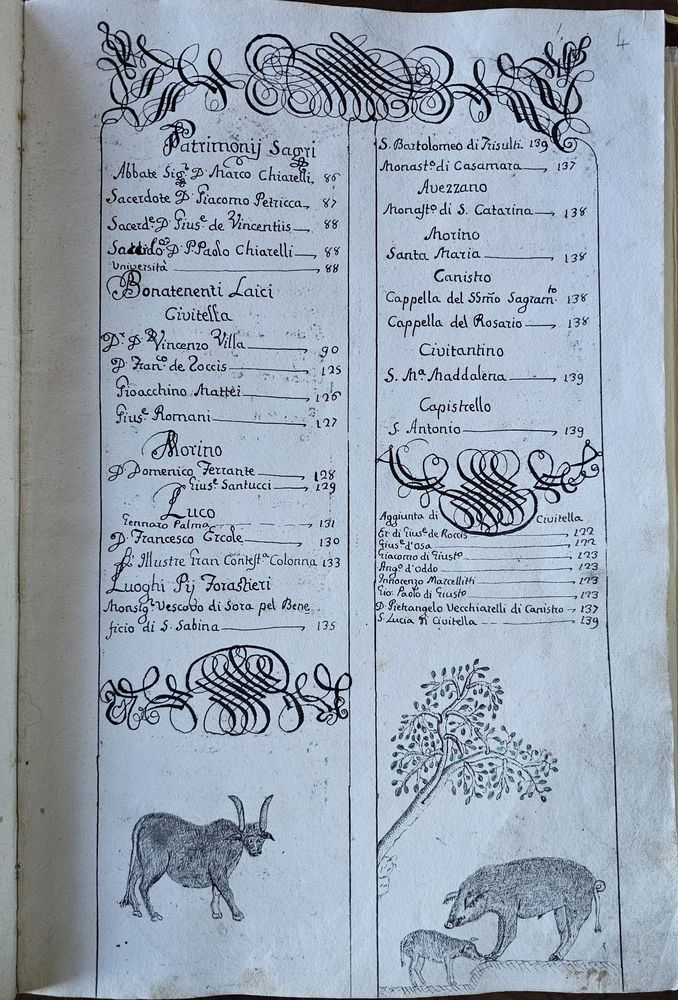 4
Patrimonij Sagri
Abbate Sigr. D. Marco Chiarelli, 86
Sacerdote D. Giacomo Petricca 87
Sacerde. D. Giuse. de Vincentiis 88
D. P. Paolo Chiarelli 88
Università 88
Bonatenenti Laici
Civitella
Dr. D. Vincenzo Villa 90
D. Franco. de Zoccis 125
Gioacchino Mattei 126
Giuse. Romani 127
Morino
D. Domenico Ferrante 128
Giuse. Santucci 129
Luco
Gennaro Palma 131
D. Francesco Ercole 130
Illustre Gran Contesta. Colonna 133
Luoghi Pij Forastieri
Monsigr. Vescovo di Sora pel Bene
ficio di S. Sabina 135
S. Bartolomeo di Trisulti. 139
Monasto. di Casamara 137
Avezzano
Monasto. di S. Catarina 138
Morino
Santa Maria 138
Canistro
Cappella del SSmo Sagramto. 138
Cappella del Rosario 138
Civitantino
S. Ma. Maddalena 139
Capistrello
S. Antonio 139
Aggiunta di Civitella
Er. di Giuse. de Roccis 122
Giuse. d'Osa 122
Giacomo di Giusto 123
Ango. d'Oddo 123
Innocenzo Marcellitti 123
Gio: Paolo di Giusto 123
D. Pietrangelo Vecchiarelli di Canistro 137
S. Lucia di Civitella 139